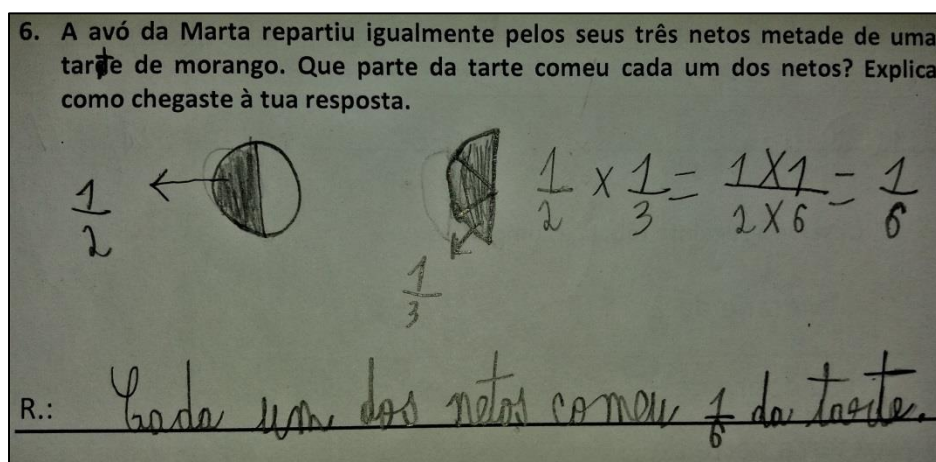 6. A avó da Marta repartiu igualmente pelos seus três netos metade de uma
tarte de morango. Que parte da tarte comeu cada um dos netos? Explica
como chegaste à tua resposta.
1/2
1/3
1/2 x 1/3 = 1x1/2x6 = 1/6
R.: Cada um dos netos comeu 1/6 da tarte.